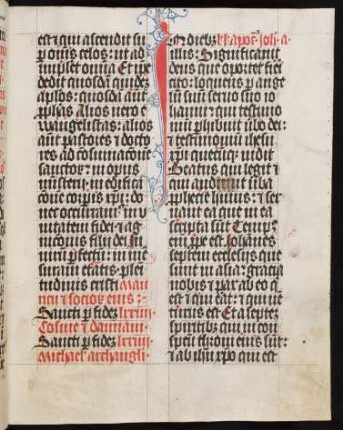 est et qui ascendit su
per omnes celos: ut ad
impleret omnia Et ipse
dedit quosdam quidem
apostolos: quosdam autem
prophetas Alios vero e
wangelistas: alios
autem pastores et docto
res ad consumacionem
sanctorum: in opus
ministerii: in edificati
onem corporis christi: do
nec occurramus in v
nitatem fidei et ag
nicionis filii dei in
virum perfectum: in me
suram etatis: ple
nitudinis cristi Mau
ricii et sociorum eius:
Sancti per fidem lxxiiii
Cosme et damiani.
Sancti per fidem lxxiiii
Michaelis archangeli.
In diebus L apoc. Joh. a.
illis: Significavit
deus que oportet fieri
cito: loquens per ange
lum suum servo suo io
hanni: qui testimo
nium perhibuit verbo dei:
et testimonium ihesu
christi quecumque vidit
Beatus qui legit et
qui audit verba
prophecie huius: et ser
vant ea que in ea
scripta sunt Tempus
enim prope est Johannes
septem ecclesiis que
sunt in asia: gracia
vobis et pax ab eo qui
est et qui erat: et qui ven
turus est Et a septem
spiritibus qui in con
spectu throni eius sunt:
et ab ihesu christo qui est